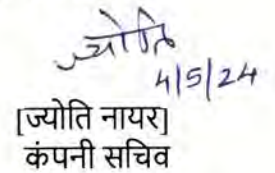 ज्योति
4/5/24
[ज्योति नायर]
कंपनी सचिव